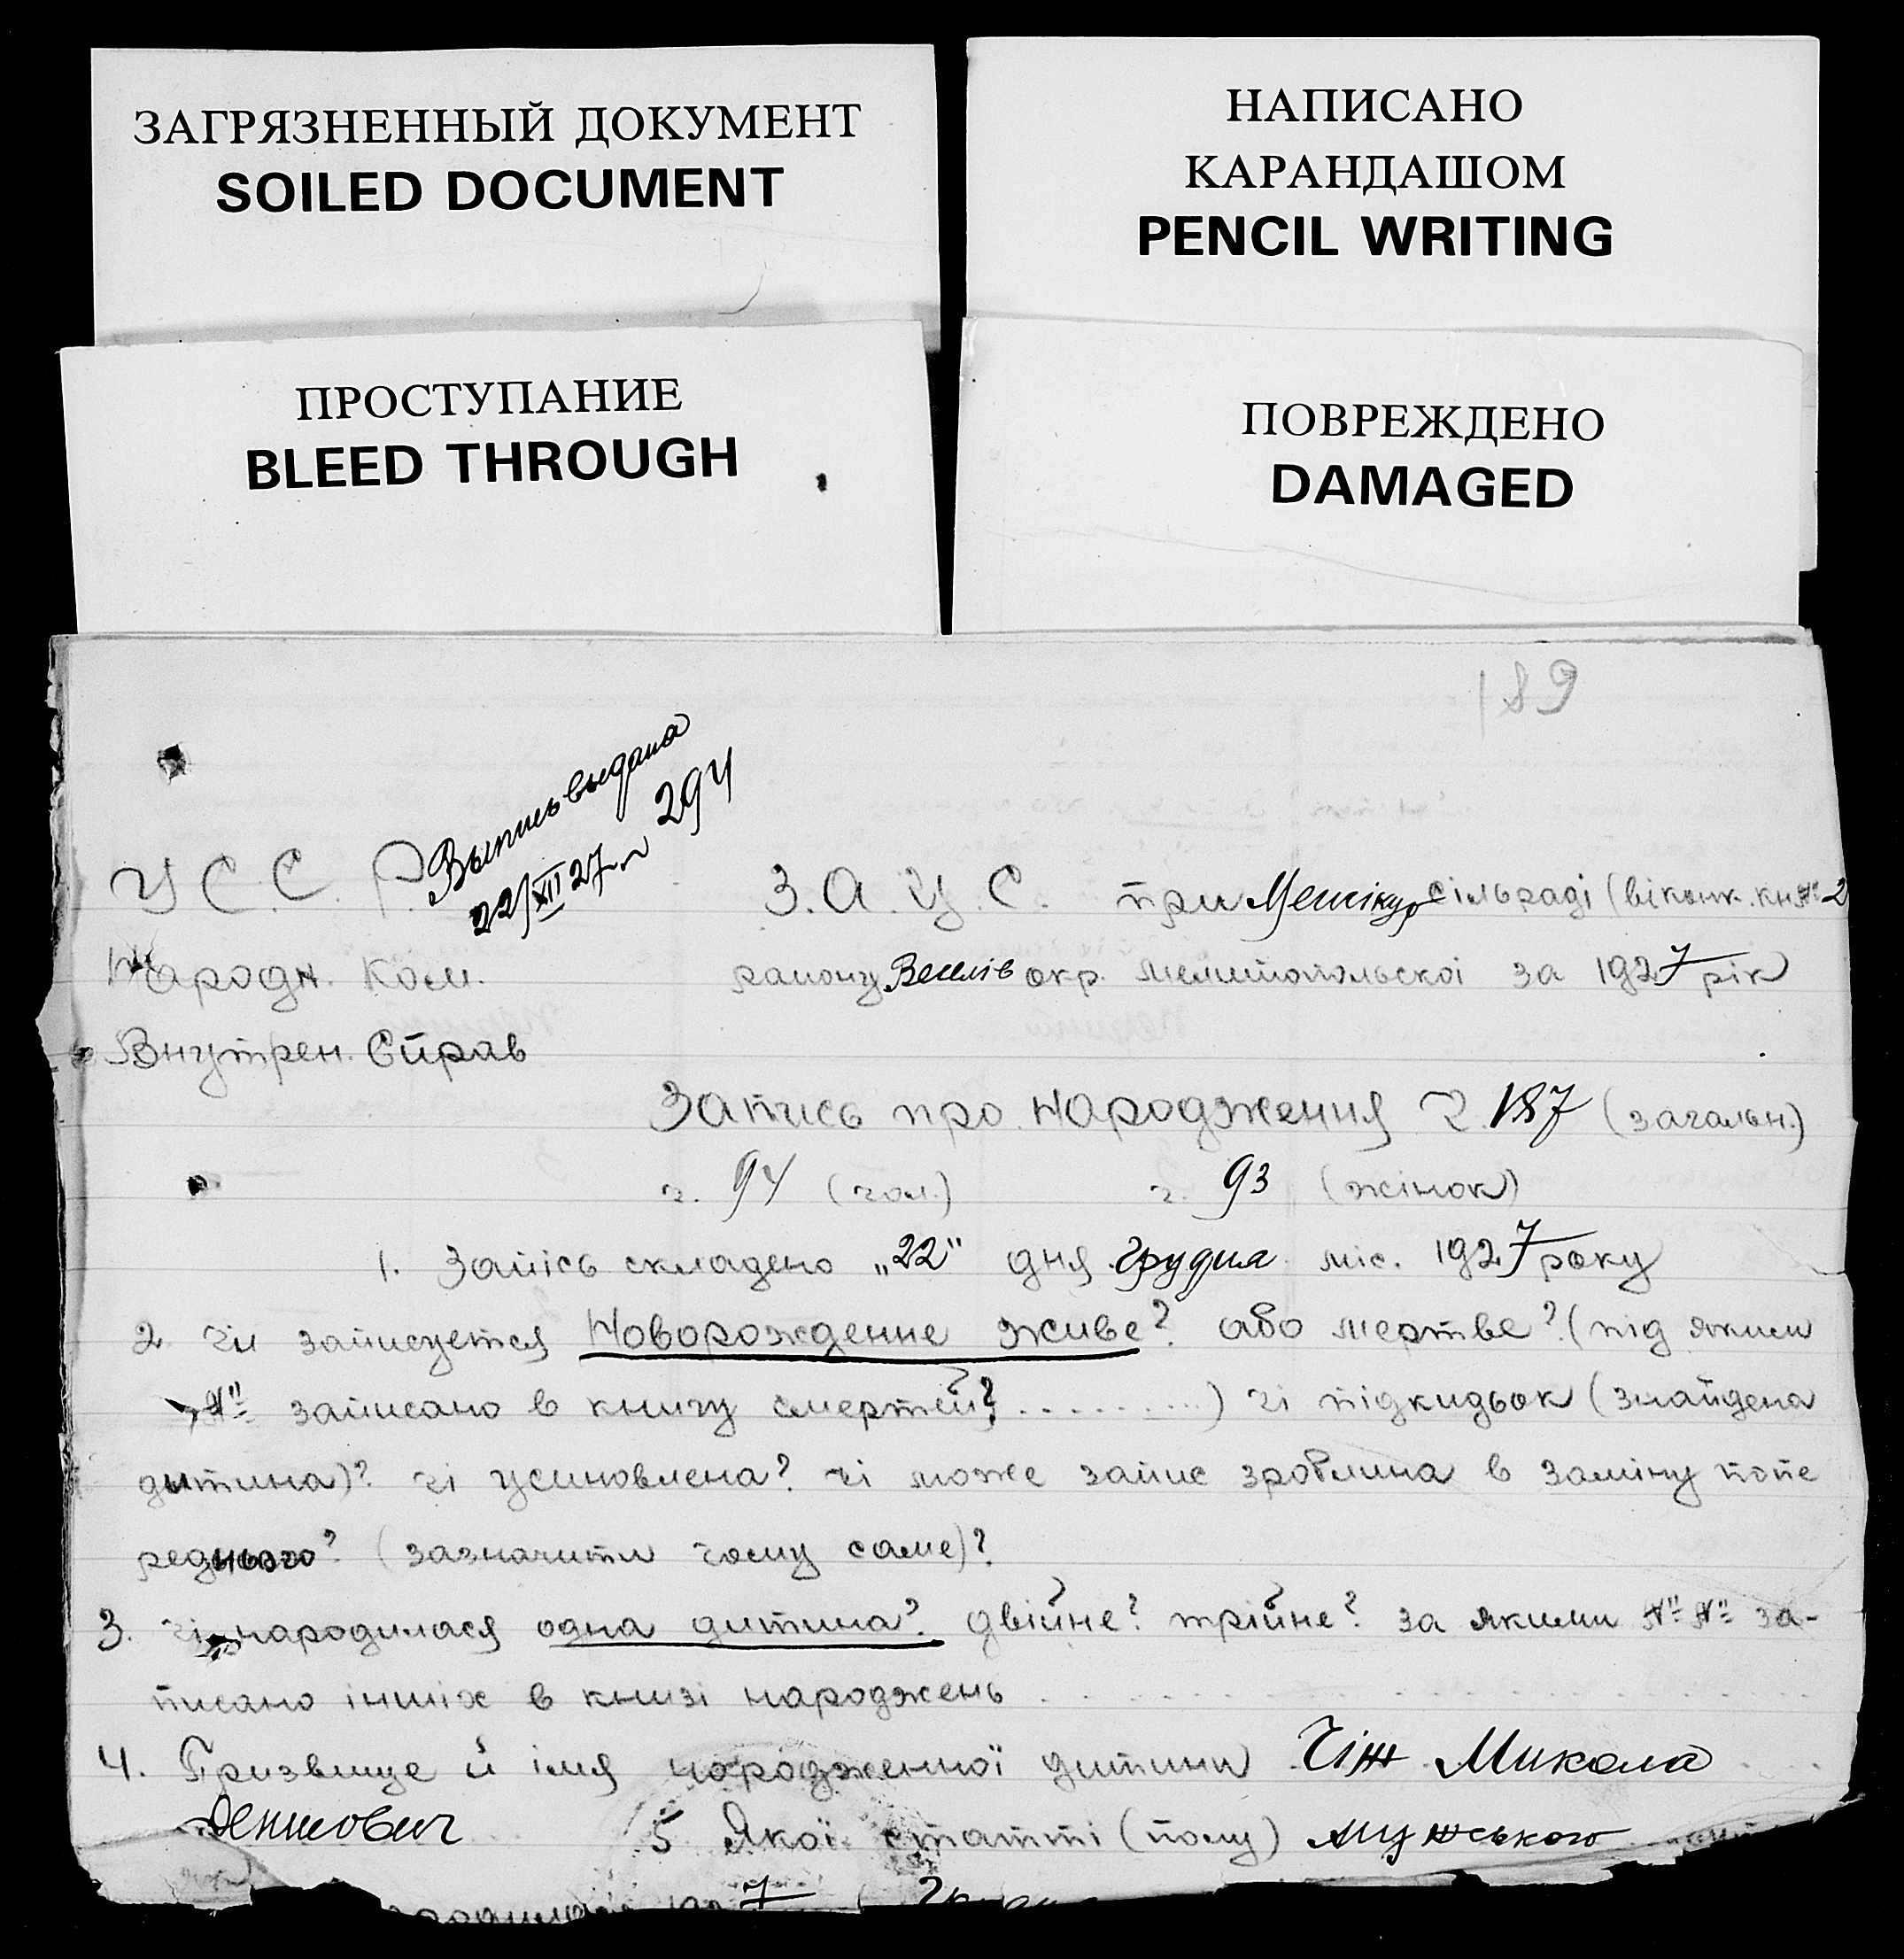 ЗАГРЯЗНЕННЫЙ ДОКУМЕНТ
SOILED DOCUMENT
НАПИСАНО
КАРАНДАШОМ
PENCIL WRITING
ПРОСТУПАНИЕ
BLEED THROUGH
ПОВРЕЖДЕНО
DAMAGED
189
Выпись выдана
22/XII 27 г. 294
У С. С. Р.
Народн. Ком.
Внутрен. Справ
З. А. У. С. при сільраді (віконк. кн. № 2
району Веселів окр. Мелитопольскоі за 1927 рік
Запись про народження ч. 187 (загальн.)
ч. 94 (чол.) ч. 93 (жінок)
1. Запісь складено „22" дня грудня міс. 1927 року
2. Чи записуется Новорождение живе? або мертве? (під яким
№ записано в книгу смертей? ..........) чі підкидьок (знайдена
дитина)? чі усиновлена? чі може запис зроблина в заміну попе
реднього? (зазначити чому саме)?
3. чі народилася одна дитина? двійне? трійне? за якими № № за-
писано інших в книзі народжень
4. Призвище й імя народженної дитини Чіж Микола
Денисович 5 Якої статті (полу) мужського